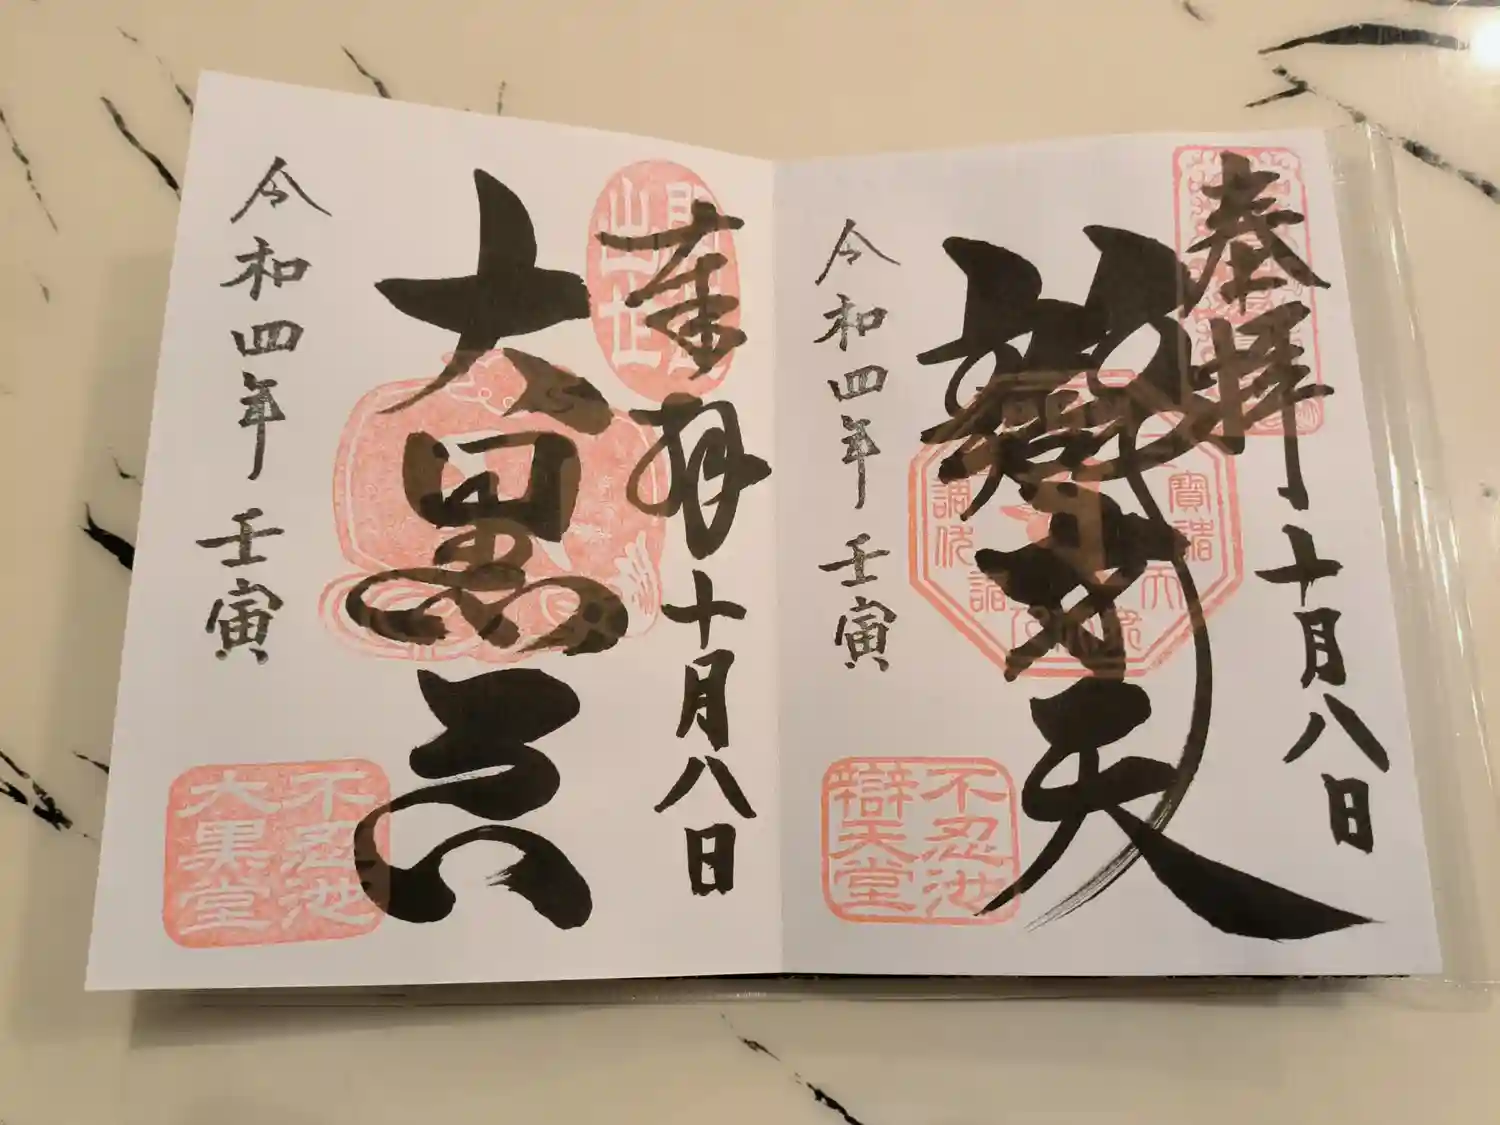 奉拝 十月八日
辯才天
令和四年 壬寅
不忍池
辯天堂
奉拝 十月八日
大黒天
令和四年 壬寅
不忍池
大黒堂